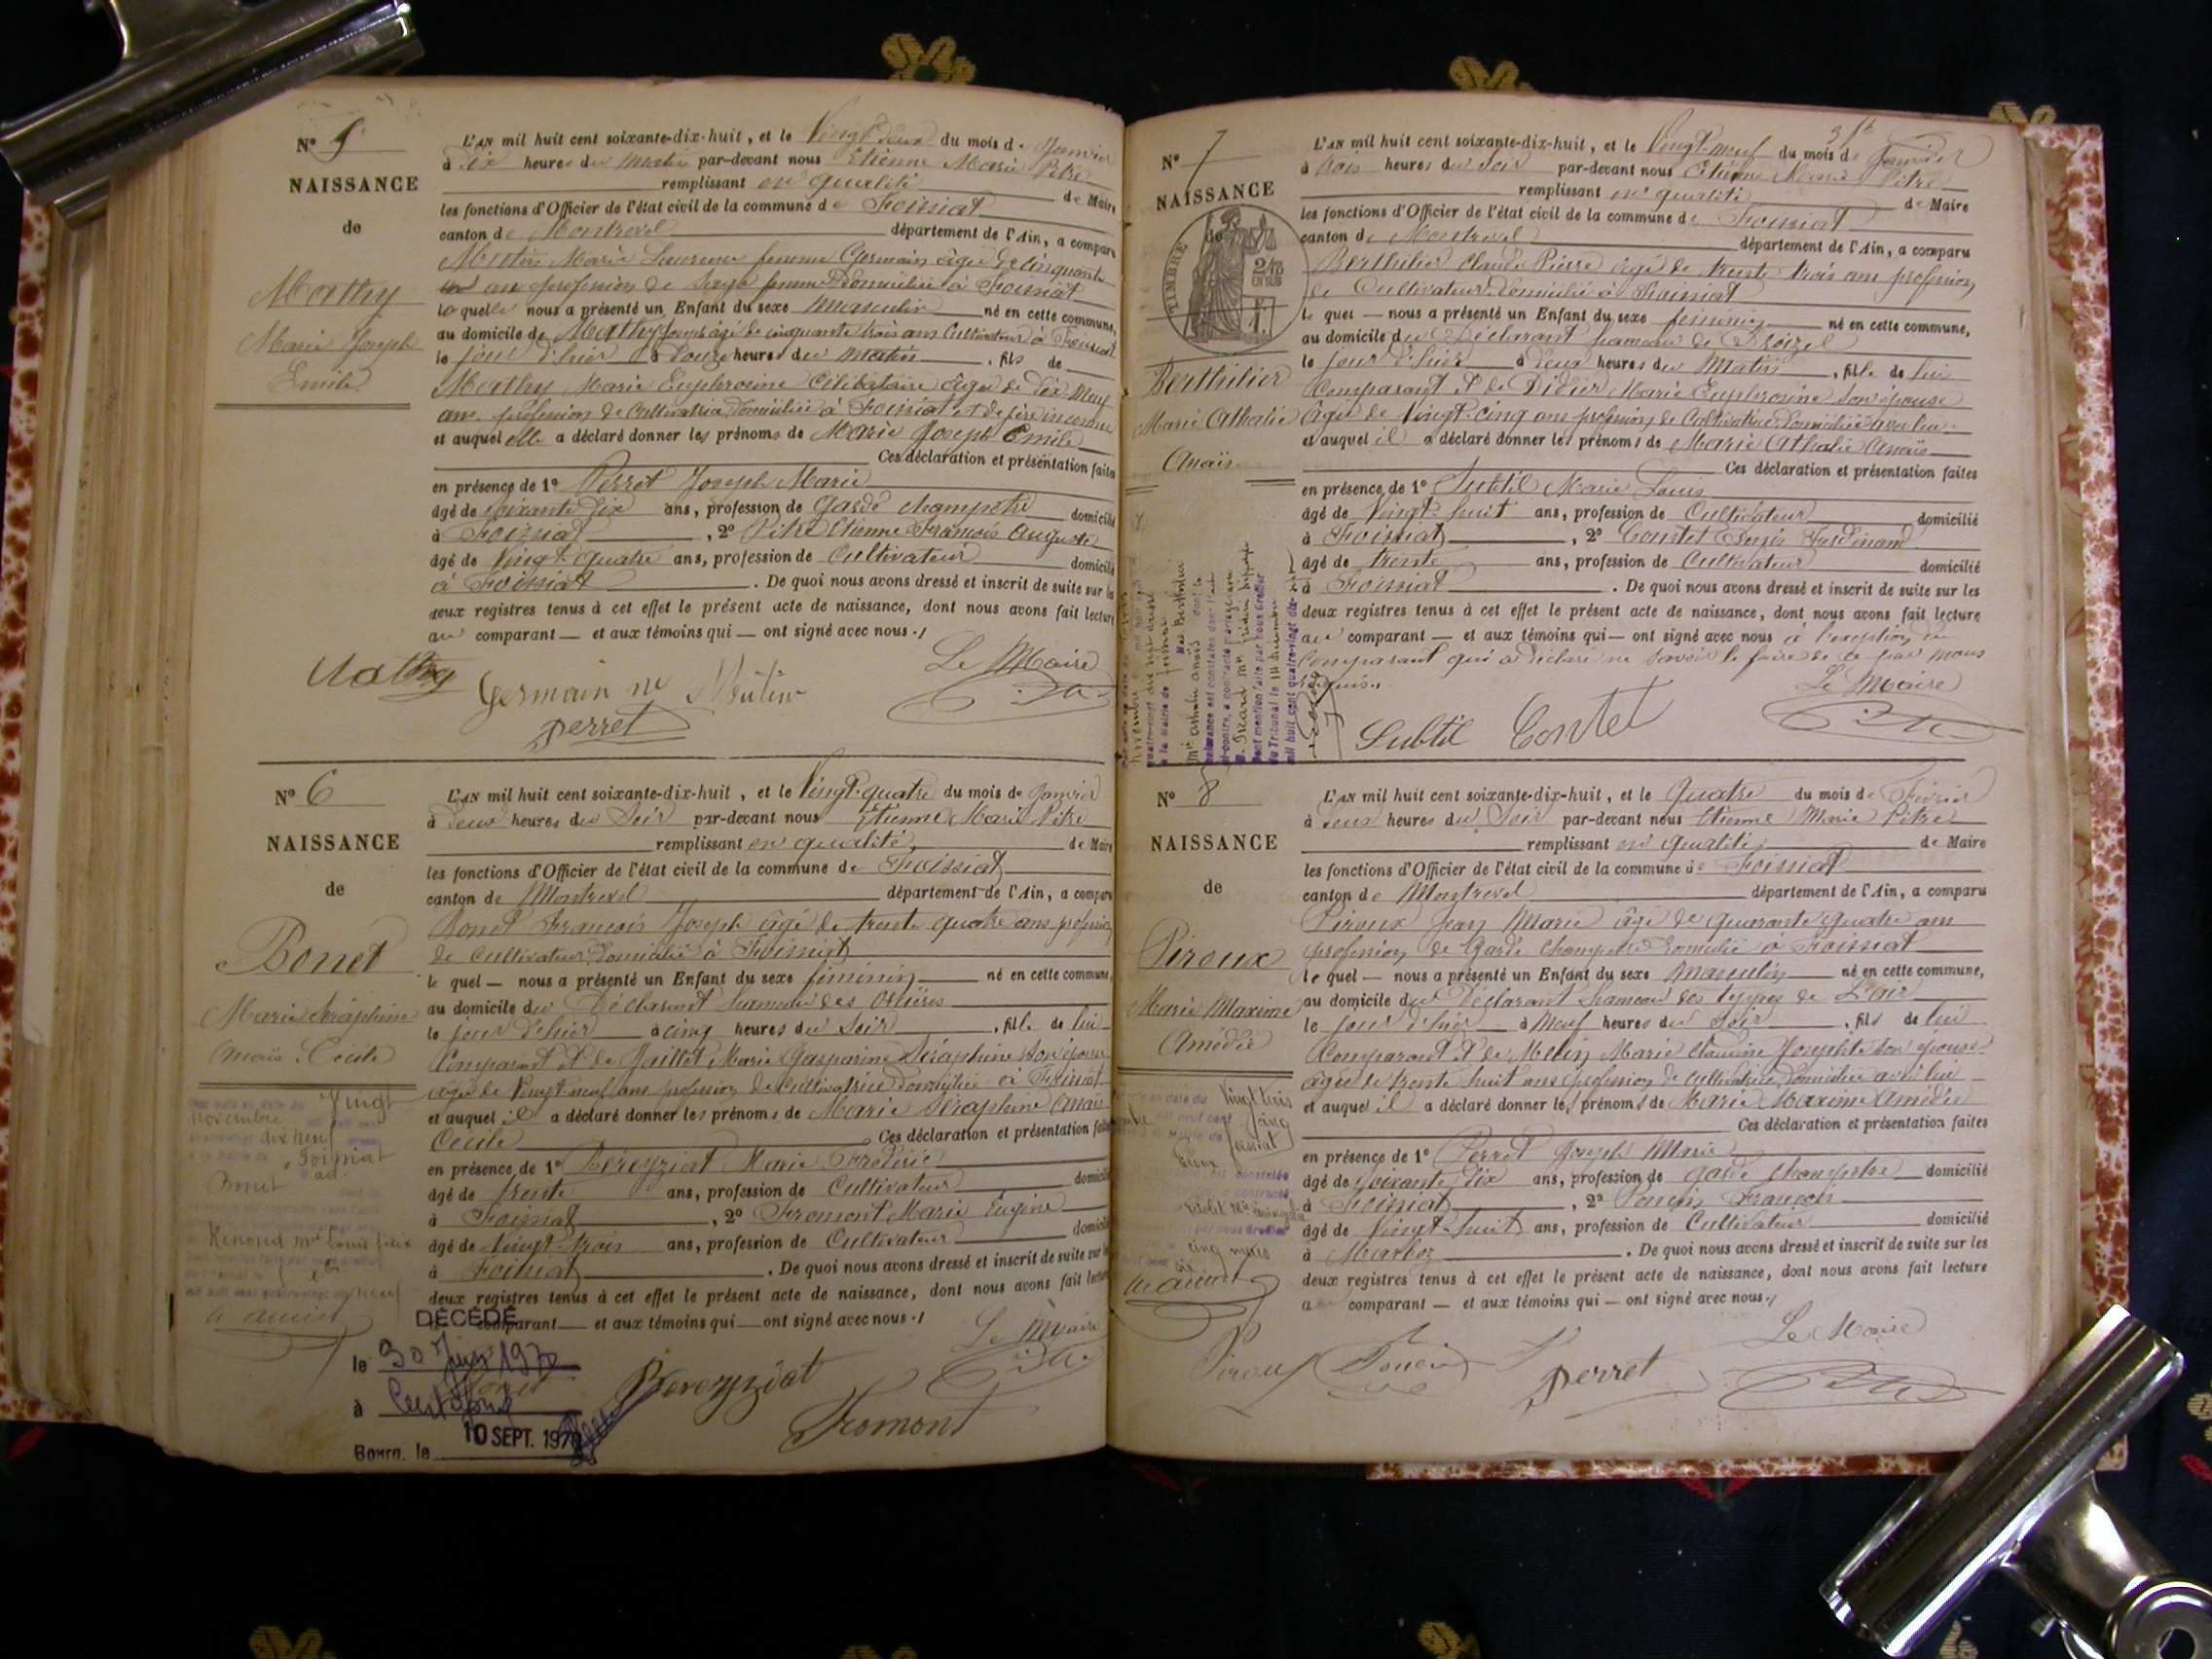 N° 5
NAISSANCE
de
Mathy
Marie Joseph
Emile
L'AN mil huit cent soixante-dix-huit, et le Vingt deux du mois de Janvier
à dix heures du Matin par-devant nous Etienne Marie Pitre
remplissant en qualité de Maire
les fonctions d'Officier de l'état civil de la commune de Foissiat
canton de Montrevel département de l'Ain, a comparu
Mutin Marie Laurence femme Germain âgée de cinquante
un ans profession de Sage femme Domiciliée à Foissiat
la quelle nous a présenté un Enfant du sexe Masculin né en cette commune,
au domicile de Mathy Joseph âgé de cinquante trois ans Cultivateur à Foissiat
le jour d'hier à Douze heures du Matin, fils de
Mathy Marie Euphrosine Célibataire âgée de dix-Neuf
ans profession de Cultivatrice Domiciliée à Foissiat et de père inconnu
et auquel elle a déclaré donner les prénoms de Marie Joseph Emile
Ces déclaration et présentation faites
en présence de 1° Perret Joseph Marie
âgé de soixante dix ans, profession de Garde champetre domicilié
à Foissiat, 2° Pitre Etienne François Auguste
âgé de Vingt-quatre ans, profession de Cultivateur domicilié
à Foissiat. De quoi nous avons dressé et inscrit de suite sur les
deux registres tenus à cet effet le présent acte de naissance, dont nous avons fait lecture
au comparant — et aux témoins qui — ont signé avec nous ./
Le Maire
Mathy Germain né Mutin
Perret
N° 6
NAISSANCE
de
Bonet
Marie Séraphine
Anaïs Cécile
L'AN mil huit cent soixante-dix-huit, et le Vingt-quatre du mois de Janvier
à Deux heures du Soir par-devant nous Etienne Marie Pitre
remplissant en qualité de Maire
les fonctions d'Officier de l'état civil de la commune de Foissiat
canton de Montrevel département de l'Ain, a comparu
Bonet François Joseph âgé de trente quatre ans profession
de Cultivateur Domicilié à Foissiat
le quel — nous a présenté un Enfant du sexe féminin né en cette commune,
au domicile du Déclarant hameau des
le jour d'hier à cinq heures du Soir, fille de lui
Comparant et de Juillet Marie Gasparine Séraphine Son épouse
âgée de Vingt-neuf ans profession de Cultivatrice Domiciliée à Foissiat
et auquel il a déclaré donner les prénoms de Marie Séraphine Anaïs
Cécile Ces déclaration et présentation faites
en présence de 1° Béreyziat Marie Frédéric
âgé de trente ans, profession de Cultivateur domicilié
à Foissiat, 2° Fromont Marie Eugène
âgé de Vingt-trois ans, profession de Cultivateur domicilié
à Foissiat. De quoi nous avons dressé et inscrit de suite sur les
deux registres tenus à cet effet le présent acte de naissance, dont nous avons fait lecture
comparant — et aux témoins qui — ont signé avec nous ./
Vingt
novembre
dix neuf
Foissiat
Bonet
Renond Mie Louis Félix
DÉCÉDÉ
le 30 Juin 1970
à
Bourg, le 10 SEPT. 1970
Le Maire
Béreyziat
Fromont
N° 7
NAISSANCE
de
TIMBRE
Berthilier
Marie Athalie
Anaïs
L'AN mil huit cent soixante-dix-huit, et le Vingt-neuf du mois de Janvier
à trois heures du Soir par-devant nous Etienne Marie Pitre
remplissant en qualité de Maire
les fonctions d'Officier de l'état civil de la commune de Foissiat
canton de Montrevel département de l'Ain, a comparu
Berthilier Claude Pierre âgé de trente trois ans profession
de Cultivateur Domicilié à Foissiat
le quel — nous a présenté un Enfant du sexe féminin né en cette commune,
au domicile du Déclarant hameau de
le jour d'hier à Deux heures du Matin, fille de lui
Comparant et de Didier Marie Euphrosine Son épouse
âgée de Vingt-cinq ans profession de Cultivatrice domiciliée avec lui
et auquel il a déclaré donner les prénoms de Marie Athalie Anaïs
Ces déclaration et présentation faites
en présence de 1° Subtil Marie Louis
âgé de Vingt-huit ans, profession de Cultivateur domicilié
à Foissiat, 2° Contet Ferdinand
âgé de trente ans, profession de Cultivateur domicilié
à Foissiat. De quoi nous avons dressé et inscrit de suite sur les
deux registres tenus à cet effet le présent acte de naissance, dont nous avons fait lecture
au comparant — et aux témoins qui — ont signé avec nous à l'exception du
Comparant qui a Déclaré ne savoir le faire de ce par nous
requis ./
Le Maire
Subtil Contet
N° 8
NAISSANCE
de
Piroux
Marie Maxime
Amédée
L'AN mil huit cent soixante-dix-huit, et le Quatre du mois de Février
à Deux heures du Soir par-devant nous Etienne Marie Pitre
remplissant en qualité de Maire
les fonctions d'Officier de l'état civil de la commune de Foissiat
canton de Montrevel département de l'Ain, a comparu
Piroux Jean Marie âgé de quarante quatre ans
profession de Garde Champetre Domicilié à Foissiat
le quel — nous a présenté un Enfant du sexe Masculin né en cette commune,
au domicile du Déclarant hameau des
le jour d'hier à Neuf heures du Soir, fils de lui
Comparant et de Melin Marie Claudine Josephte Son épouse
âgée de trente huit ans profession de Cultivatrice Domiciliée avec lui
et auquel il a déclaré donner les prénoms de Marie Maxime Amédée
Ces déclaration et présentation faites
en présence de 1° Perret Joseph Marie
âgé de soixante dix ans, profession de garde champetre domicilié
à Foissiat, 2° Poncin François
âgé de Vingt-huit ans, profession de Cultivateur domicilié
à Marboz. De quoi nous avons dressé et inscrit de suite sur les
deux registres tenus à cet effet le présent acte de naissance, dont nous avons fait lecture
au comparant — et aux témoins qui — ont signé avec nous ./
Vingt trois
cinq
Foissiat
cinq mars
Le Maire
Piroux Poncin Perret